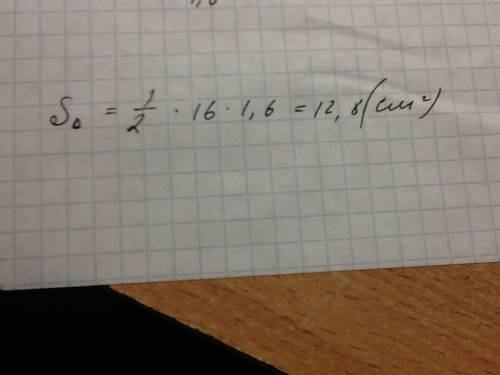 S△ = 1/2 · 16 · 1,6 = 12,8 (см²)